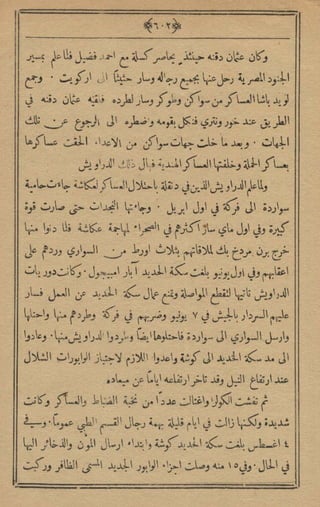 ﴿٦٠٢﴾
وكان عثمان دقنه حينئذٍ يحاصر كسلة مع احمد فضيل فلما علم بمسير
الجنود المصرية رحل عنها بجميع رجاله وسار حثيثاً الى اركويت . وجمع
لويد باشا العساكر من سواكن وطوكر وسار لطرده فلقيه عثمان دقنه في
الطريق عند خور ونتري فنكل بقومه واضطره الى الرجوع عن تلك
الجهات . وبعد ما خلت جهات سواكن من الاعداء الحقت عساكرها
بعساكر الحملة وخلفتها العساكر الهندية قبال ذلك الدراويش
ولما علم الدراويش الذين في دنقلة باحتلال العساكر لعكاشة جاءت حامية
سواردة الى فركة في اول ابريل . وجاءتها النجدات حتى صارت قوة
كبيرة وفي اول مايو سار اكثرهم في الصحراء لمهاجمة عكاشة فلما دنوا منها
خرج برن مردخ بك لملاقاتهم بثلاث اورط من السواري وردهم على
اعقابهم وفي اول يونيو بلغت سكة الحديد آبار امبيجول . وكانت دوريات
الدراويش تأتيها لتقطع المواصلة وتمنع عمال سكة الحديد عن العمل فسار
عليهم السردار بالجيش في ٧ يونيو وضربهم في فركة وطردهم منها واحتلها
وارسل السواري الى سواردة فاحتلوها ايضاً وطردوا الدراويش منها . وعادوا
الى مد سكة الحديد الى كوشة واعدوا اللازم لاجتياز الوابورات الشلال
عند ارتفاع النيل وقد تاخر ارتفاعه اياماً عن ميعاده
ثم تفشت الكولرا واغتالت عدداً من نخبة الضباط والعساكر وكانت
شديدة ولكنها زالت في ايام قليلة بهمة رجال القسم الطبي عموماً . وفي
٤ اغسطس بلغت سكة الحديد كوشة وابتداء ارسال المون والذخائر اليها
في الحال . وفي ١٥ منه وصلت اجزاء الوابور الجديد المسمى الظافر وركبت